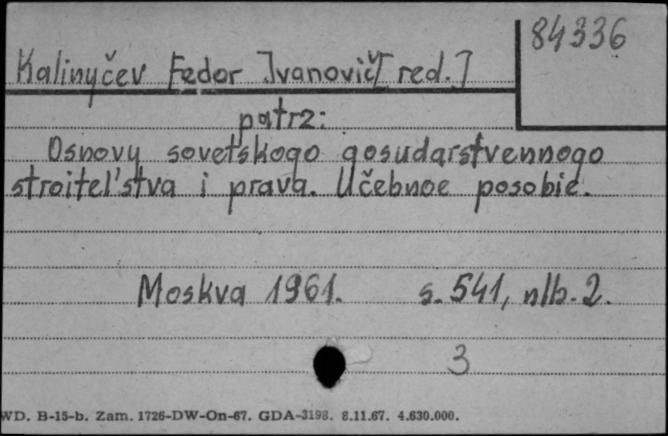 84336
Kalinyčev Fedor Ivanovič [red.]
patrz:
Osnovy sovetskogo gosudarstvennogo
stroitel'stva i prava. Učebnoe posobie.
Moskva 1961. s. 541, nlb. 2.
3
WD. B-15-b. Zam. 1726-DW-On-67. GDA-3198. 8.11.67. 4.630.000.